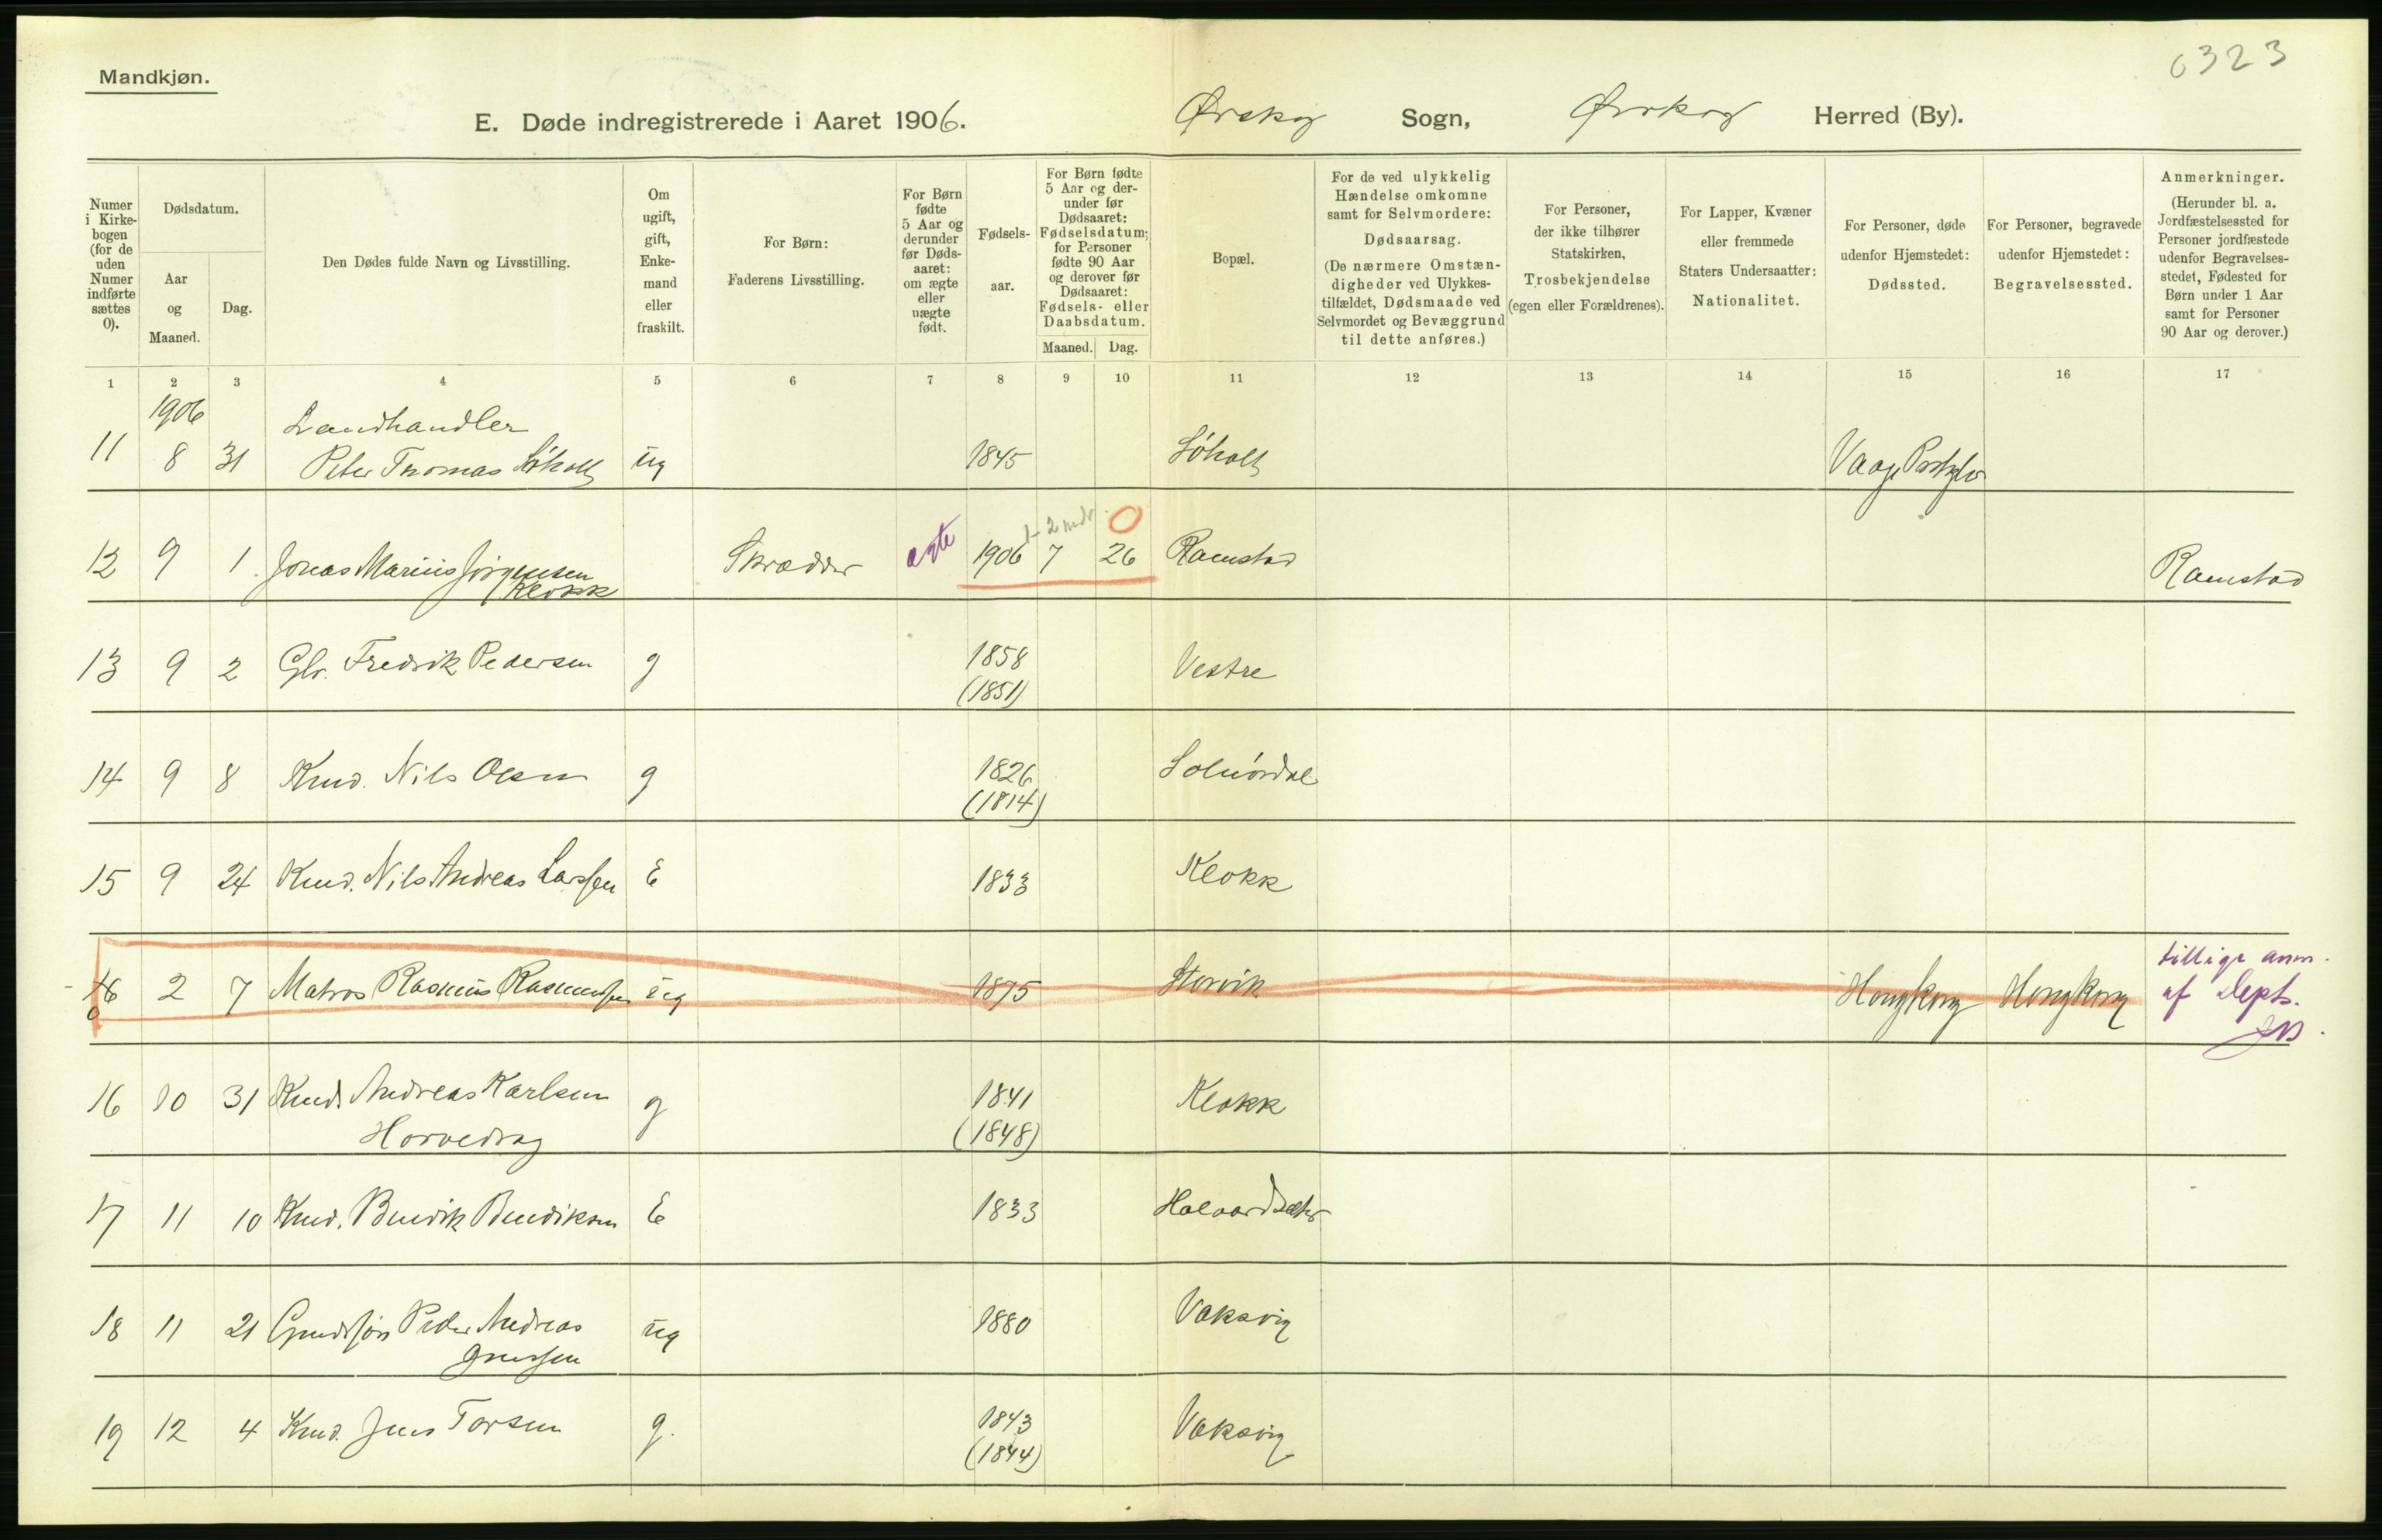 0323
Mandkjøn.
E. Døde indregistrerede i Aaret 1906. Ørskog Sogn, Ørskog Herred (By).
Numer i Kirkebogen (for de uden Numer indførte sættes 0).
Dødsdatum.
Aar og Maaned.
Dag.
Den Dødes fulde Navn og Livsstilling.
Om ugift, gift, Enkemand eller fraskilt.
For Børn: Faderens Livsstilling.
For Børn fødte 5 Aar og derunder før Dødsaaret: om ægte eller uægte født.
Fødselsaar.
For Børn fødte 5 Aar og derunder før Dødsaaret: Fødselsdatum; for Personer fødte 90 Aar og derover før Dødsaaret: Fødsels- eller Daabsdatum.
Maaned. Dag.
Bopæl.
For de ved ulykkelig Hændelse omkomne samt for Selvmordere: Dødsaarsag. (De nærmere Omstændigheder ved Ulykkestilfældet, Dødsmaade ved Selvmordet og Bevæggrund til dette anføres.)
For Personer, der ikke tilhører Statskirken, Trosbekjendelse (egen eller Forældrenes).
For Lapper, Kvæner eller fremmede Staters Undersaatter: Nationalitet.
For Personer, døde udenfor Hjemstedet: Dødssted.
For Personer, begravede udenfor Hjemstedet: Begravelsessted.
Anmerkninger. (Herunder bl. a. Jordfæstelsessted for Personer jordfæstede udenfor Begravelsesstedet, Fødested for Børn under 1 Aar samt for Personer 90 Aar og derover.)
1 2 3 4 5 6 7 8 9 10 11 12 13 14 15 16 17
1906
Landhandler
11 8 31 Peter Thomas Søholt ug 1845 Søholt Vaage
1-2 mdr. 0
12 9 1 Jonas Marius Jørgensen Skrædder ægte 1906 7 26 Ramstad Ramstad
Klokk
13 9 2 Gbr. Fredrik Pedersen g 1858 Vestre
(1851)
14 9 8 Kmd. Nils Olsen g 1826 Solnørdal
(1814)
15 9 24 Kmd. Nils Andreas Larssen E 1833 Klokk
16 2 7 Matros Rasmus Rasmussen ug 1875 Storvik Hongkong Hongkong tillige anm.
0 af Dept.
16 10 31 Kmd. Andreas Karlsen g 1841 Klokk
Horvedrag (1848)
17 11 10 Kmd. Bendik Bendiksen E 1833 Halvardsæter
18 11 21 Gmdsøn Peder Andreas ug 1880 Vaksvig
19 12 4 Kmd. Jens Torsen g. 1843 Vaksvig
(1844)